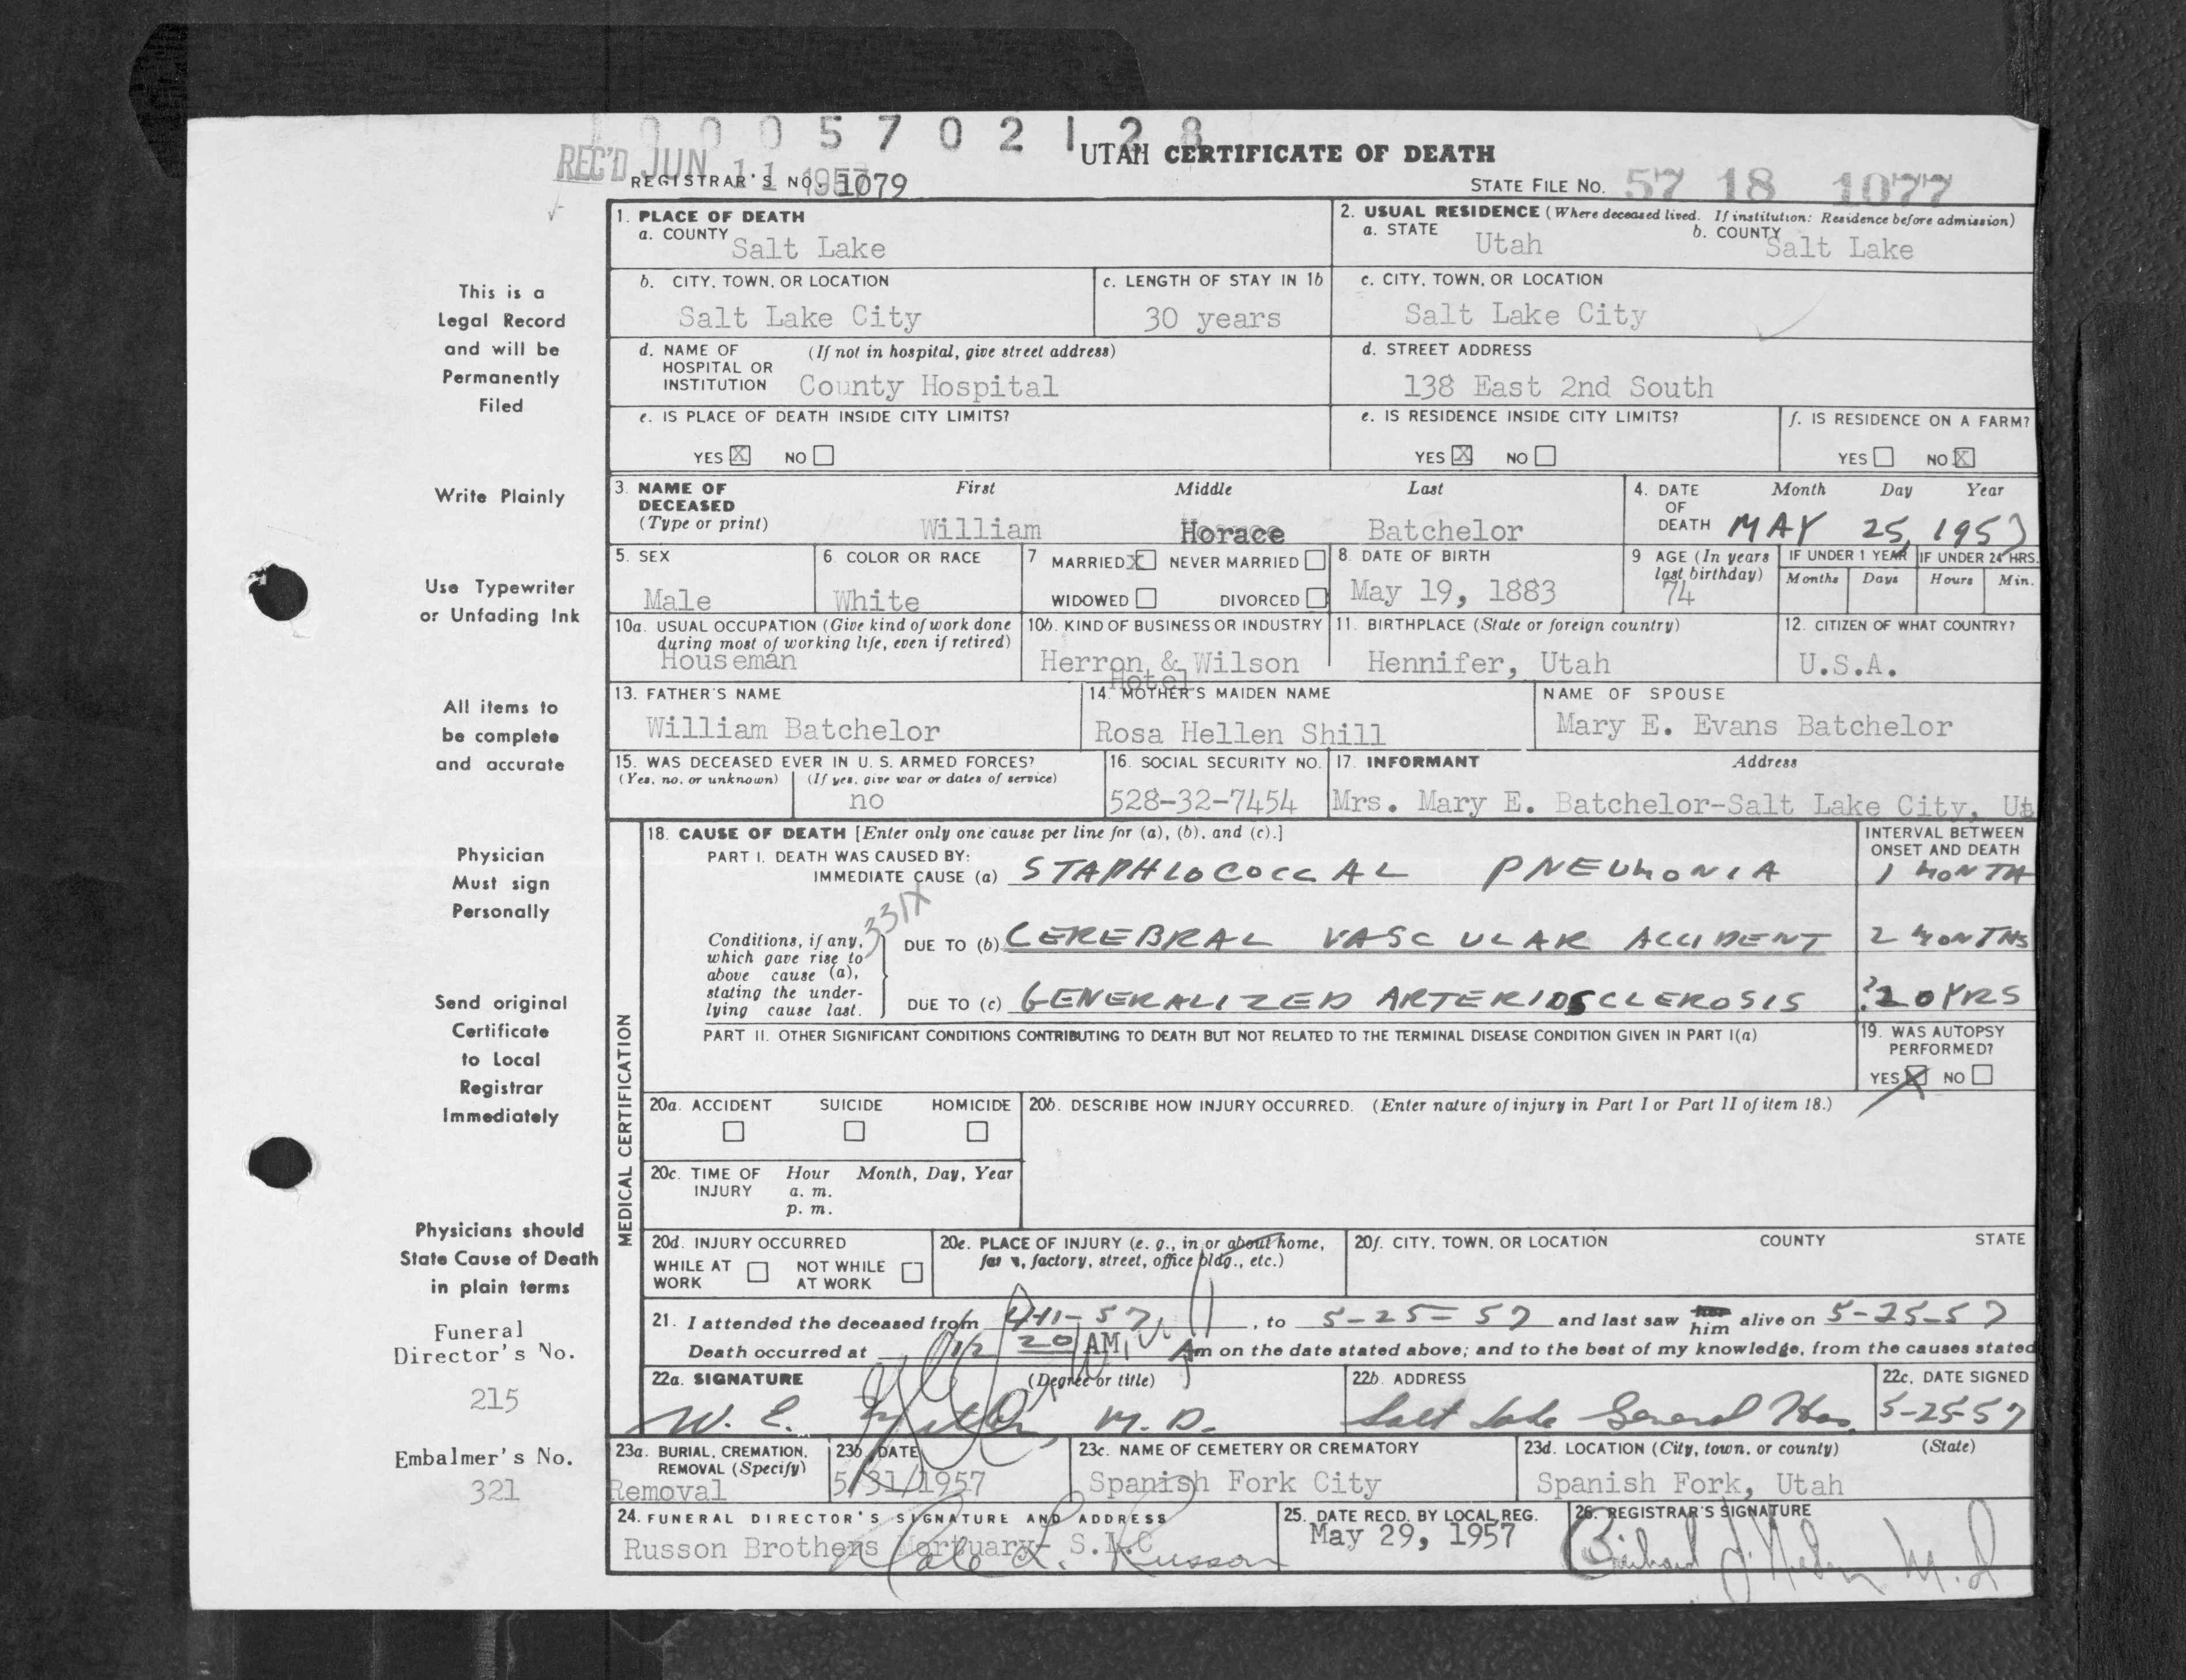 0005702128
REC'D JUN 11 1957
UTAH CERTIFICATE OF DEATH
REGISTRAR'S NO. 1079
STATE FILE NO. 57 18 1077
This is a
Legal Record
and will be
Permanently
Filed
Write Plainly
Use Typewriter
or Unfading Ink
All items to
be complete
and accurate
Physician
Must sign
Personally
Send original
Certificate
to Local
Registrar
Immediately
Physicians should
State Cause of Death
in plain terms
Funeral
Director's No.
215
Embalmer's No.
321
1. PLACE OF DEATH
a. COUNTY Salt Lake
2. USUAL RESIDENCE (Where deceased lived. If institution: Residence before admission)
a. STATE Utah b. COUNTY Salt Lake
b. CITY, TOWN, OR LOCATION
Salt Lake City
c. LENGTH OF STAY IN 1b
30 years
c. CITY, TOWN, OR LOCATION
Salt Lake City
d. NAME OF (If not in hospital, give street address)
HOSPITAL OR
INSTITUTION County Hospital
d. STREET ADDRESS
138 East 2nd South
e. IS PLACE OF DEATH INSIDE CITY LIMITS?
YES X NO
e. IS RESIDENCE INSIDE CITY LIMITS?
YES X NO
f. IS RESIDENCE ON A FARM?
YES NO X
3. NAME OF DECEASED (Type or print)
First Middle Last
William Horace Batchelor
4. DATE OF DEATH Month Day Year
MAY 25, 1957
5. SEX
Male
6. COLOR OR RACE
White
7 MARRIED X NEVER MARRIED
WIDOWED DIVORCED
8. DATE OF BIRTH
May 19, 1883
9 AGE (In years last birthday)
74
IF UNDER 1 YEAR IF UNDER 24 HRS.
Months Days Hours Min.
10a. USUAL OCCUPATION (Give kind of work done
during most of working life, even if retired)
Houseman
10b. KIND OF BUSINESS OR INDUSTRY
Herron & Wilson
Hotel
11. BIRTHPLACE (State or foreign country)
Hennifer, Utah
12. CITIZEN OF WHAT COUNTRY?
U.S.A.
13. FATHER'S NAME
William Batchelor
14. MOTHER'S MAIDEN NAME
Rosa Hellen Shill
NAME OF SPOUSE
Mary E. Evans Batchelor
15. WAS DECEASED EVER IN U. S. ARMED FORCES?
(Yes, no, or unknown) (If yes, give war or dates of service)
no
16. SOCIAL SECURITY NO.
528-32-7454
17. INFORMANT Address
Mrs. Mary E. Batchelor-Salt Lake City, Ut
MEDICAL CERTIFICATION
18. CAUSE OF DEATH [Enter only one cause per line for (a), (b), and (c).]
INTERVAL BETWEEN
ONSET AND DEATH
PART I. DEATH WAS CAUSED BY:
IMMEDIATE CAUSE (a) STAPHLOCOCCAL PNEUMONIA 1 MONTH
331X
Conditions, if any,
which gave rise to
above cause (a),
stating the under-
lying cause last.
DUE TO (b) CEREBRAL VASCULAR ACCIDENT 2 MONTHS
DUE TO (c) GENERALIZED ARTERIOSCLEROSIS ?20YRS
PART II. OTHER SIGNIFICANT CONDITIONS CONTRIBUTING TO DEATH BUT NOT RELATED TO THE TERMINAL DISEASE CONDITION GIVEN IN PART I(a)
19. WAS AUTOPSY
PERFORMED?
YES X NO
20a. ACCIDENT SUICIDE HOMICIDE
20b. DESCRIBE HOW INJURY OCCURRED. (Enter nature of injury in Part I or Part II of item 18.)
20c. TIME OF INJURY Hour Month, Day, Year
a. m.
p. m.
20d. INJURY OCCURRED
WHILE AT WORK NOT WHILE AT WORK
20e. PLACE OF INJURY (e. g., in or about home,
farm, factory, street, office bldg., etc.)
20f. CITY, TOWN, OR LOCATION COUNTY STATE
21. I attended the deceased from 4-11-57, to 5-25-57 and last saw her him alive on 5-25-57
Death occurred at 20 AM, Am on the date stated above; and to the best of my knowledge, from the causes stated
22a. SIGNATURE (Degree or title)
W. E. M.D.
22b. ADDRESS
Salt Lake General Hos.
22c. DATE SIGNED
5-25-57
23a. BURIAL, CREMATION,
REMOVAL (Specify)
Removal
23b. DATE
5/31/1957
23c. NAME OF CEMETERY OR CREMATORY
Spanish Fork City
23d. LOCATION (City, town, or county) (State)
Spanish Fork, Utah
24. FUNERAL DIRECTOR'S SIGNATURE AND ADDRESS
Russon Brothers Mortuary- S.L.C
Dale L. Russon
25. DATE RECD. BY LOCAL REG.
May 29, 1957
26. REGISTRAR'S SIGNATURE
Richard M.D